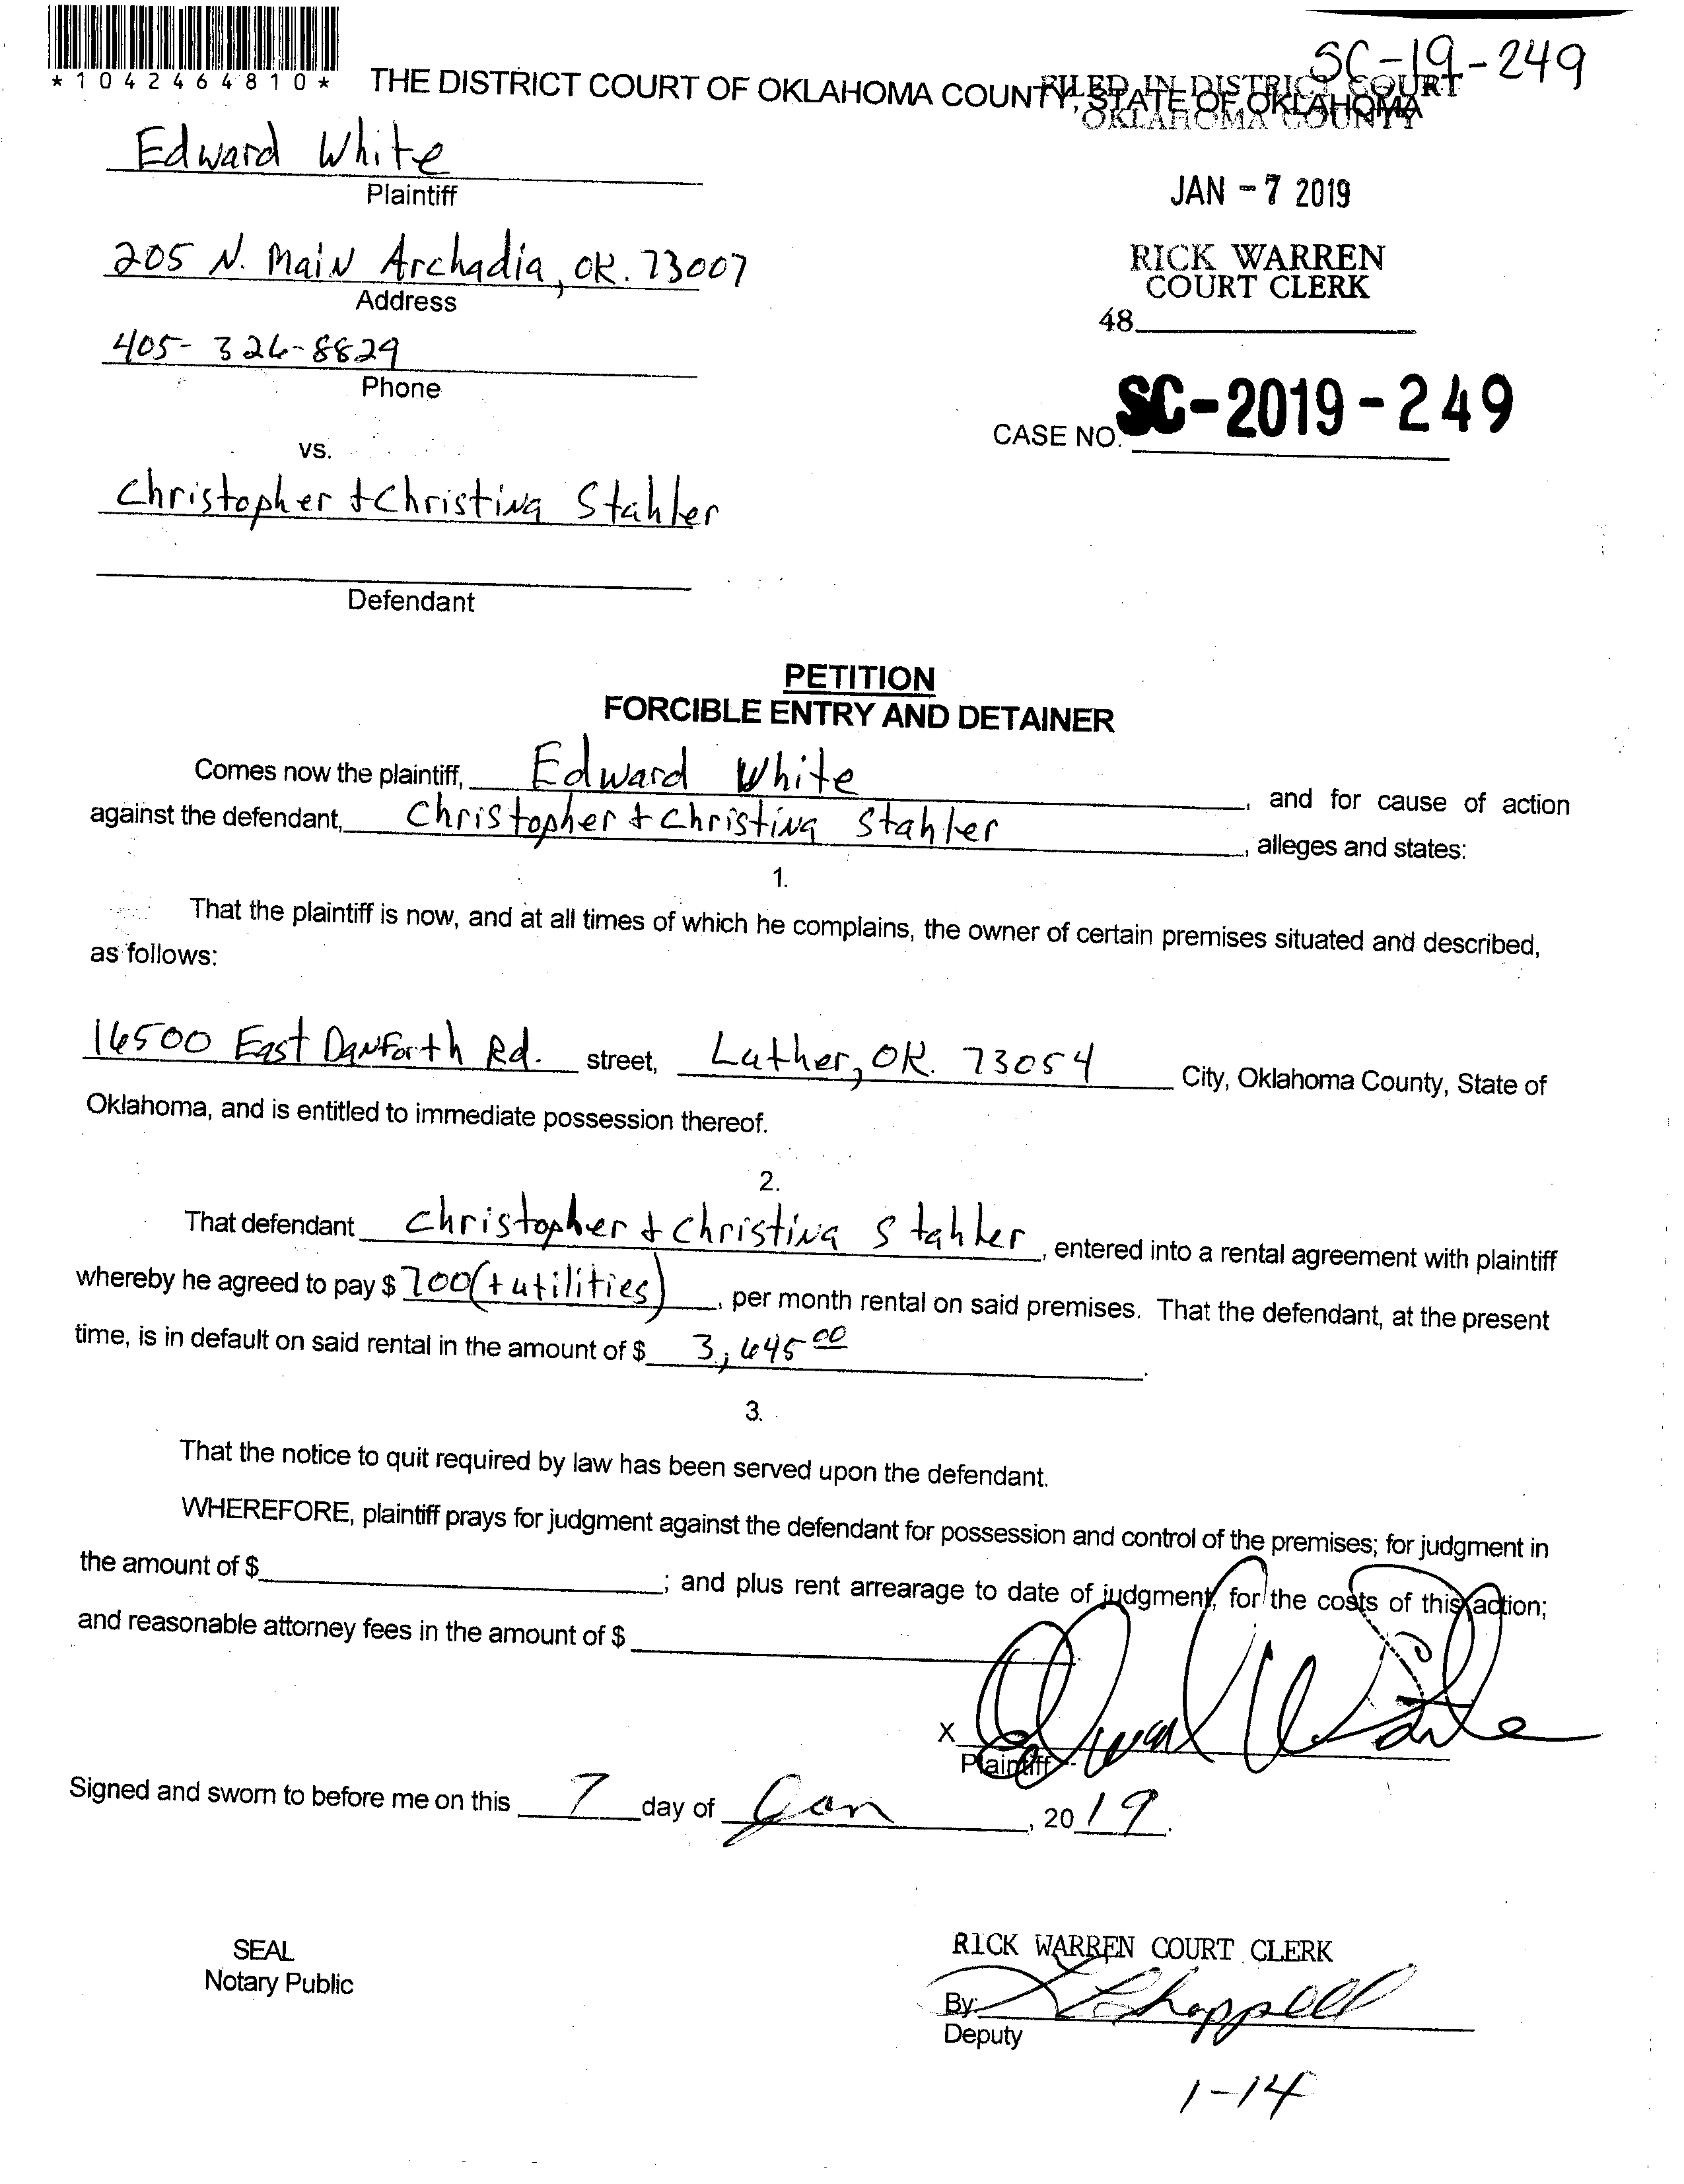 SC-19-249
*1042464810*
THE DISTRICT COURT OF OKLAHOMA COUNTY, STATE OF OKLAHOMA
FILED IN DISTRICT COURT
OKLAHOMA COUNTY
Edward White
Plaintiff
JAN -7 2019
205 N. Main Archadia, OK. 73007
Address
RICK WARREN
COURT CLERK
48
405-326-8829
Phone
CASE NO. SC-2019-249
vs.
Christopher + Christina Stahler
Defendant
PETITION
FORCIBLE ENTRY AND DETAINER
Comes now the plaintiff, Edward White, and for cause of action
against the defendant, Christopher + Christina Stahler, alleges and states:
1.
That the plaintiff is now, and at all times of which he complains, the owner of certain premises situated and described,
as follows:
16500 East Danforth Rd. street, Luther, OK. 73054 City, Oklahoma County, State of
Oklahoma, and is entitled to immediate possession thereof.
2.
That defendant Christopher + Christina Stahler, entered into a rental agreement with plaintiff
whereby he agreed to pay $ 700 (+ utilities), per month rental on said premises. That the defendant, at the present
time, is in default on said rental in the amount of $ 3,645 00.
3.
That the notice to quit required by law has been served upon the defendant.
WHEREFORE, plaintiff prays for judgment against the defendant for possession and control of the premises; for judgment in
the amount of $ ; and plus rent arrearage to date of judgment, for the costs of this action;
and reasonable attorney fees in the amount of $ .
X Edward White
Plaintiff
Signed and sworn to before me on this 7 day of Jan, 2019.
SEAL
Notary Public
RICK WARREN COURT CLERK
By: Chappell
Deputy
1-14